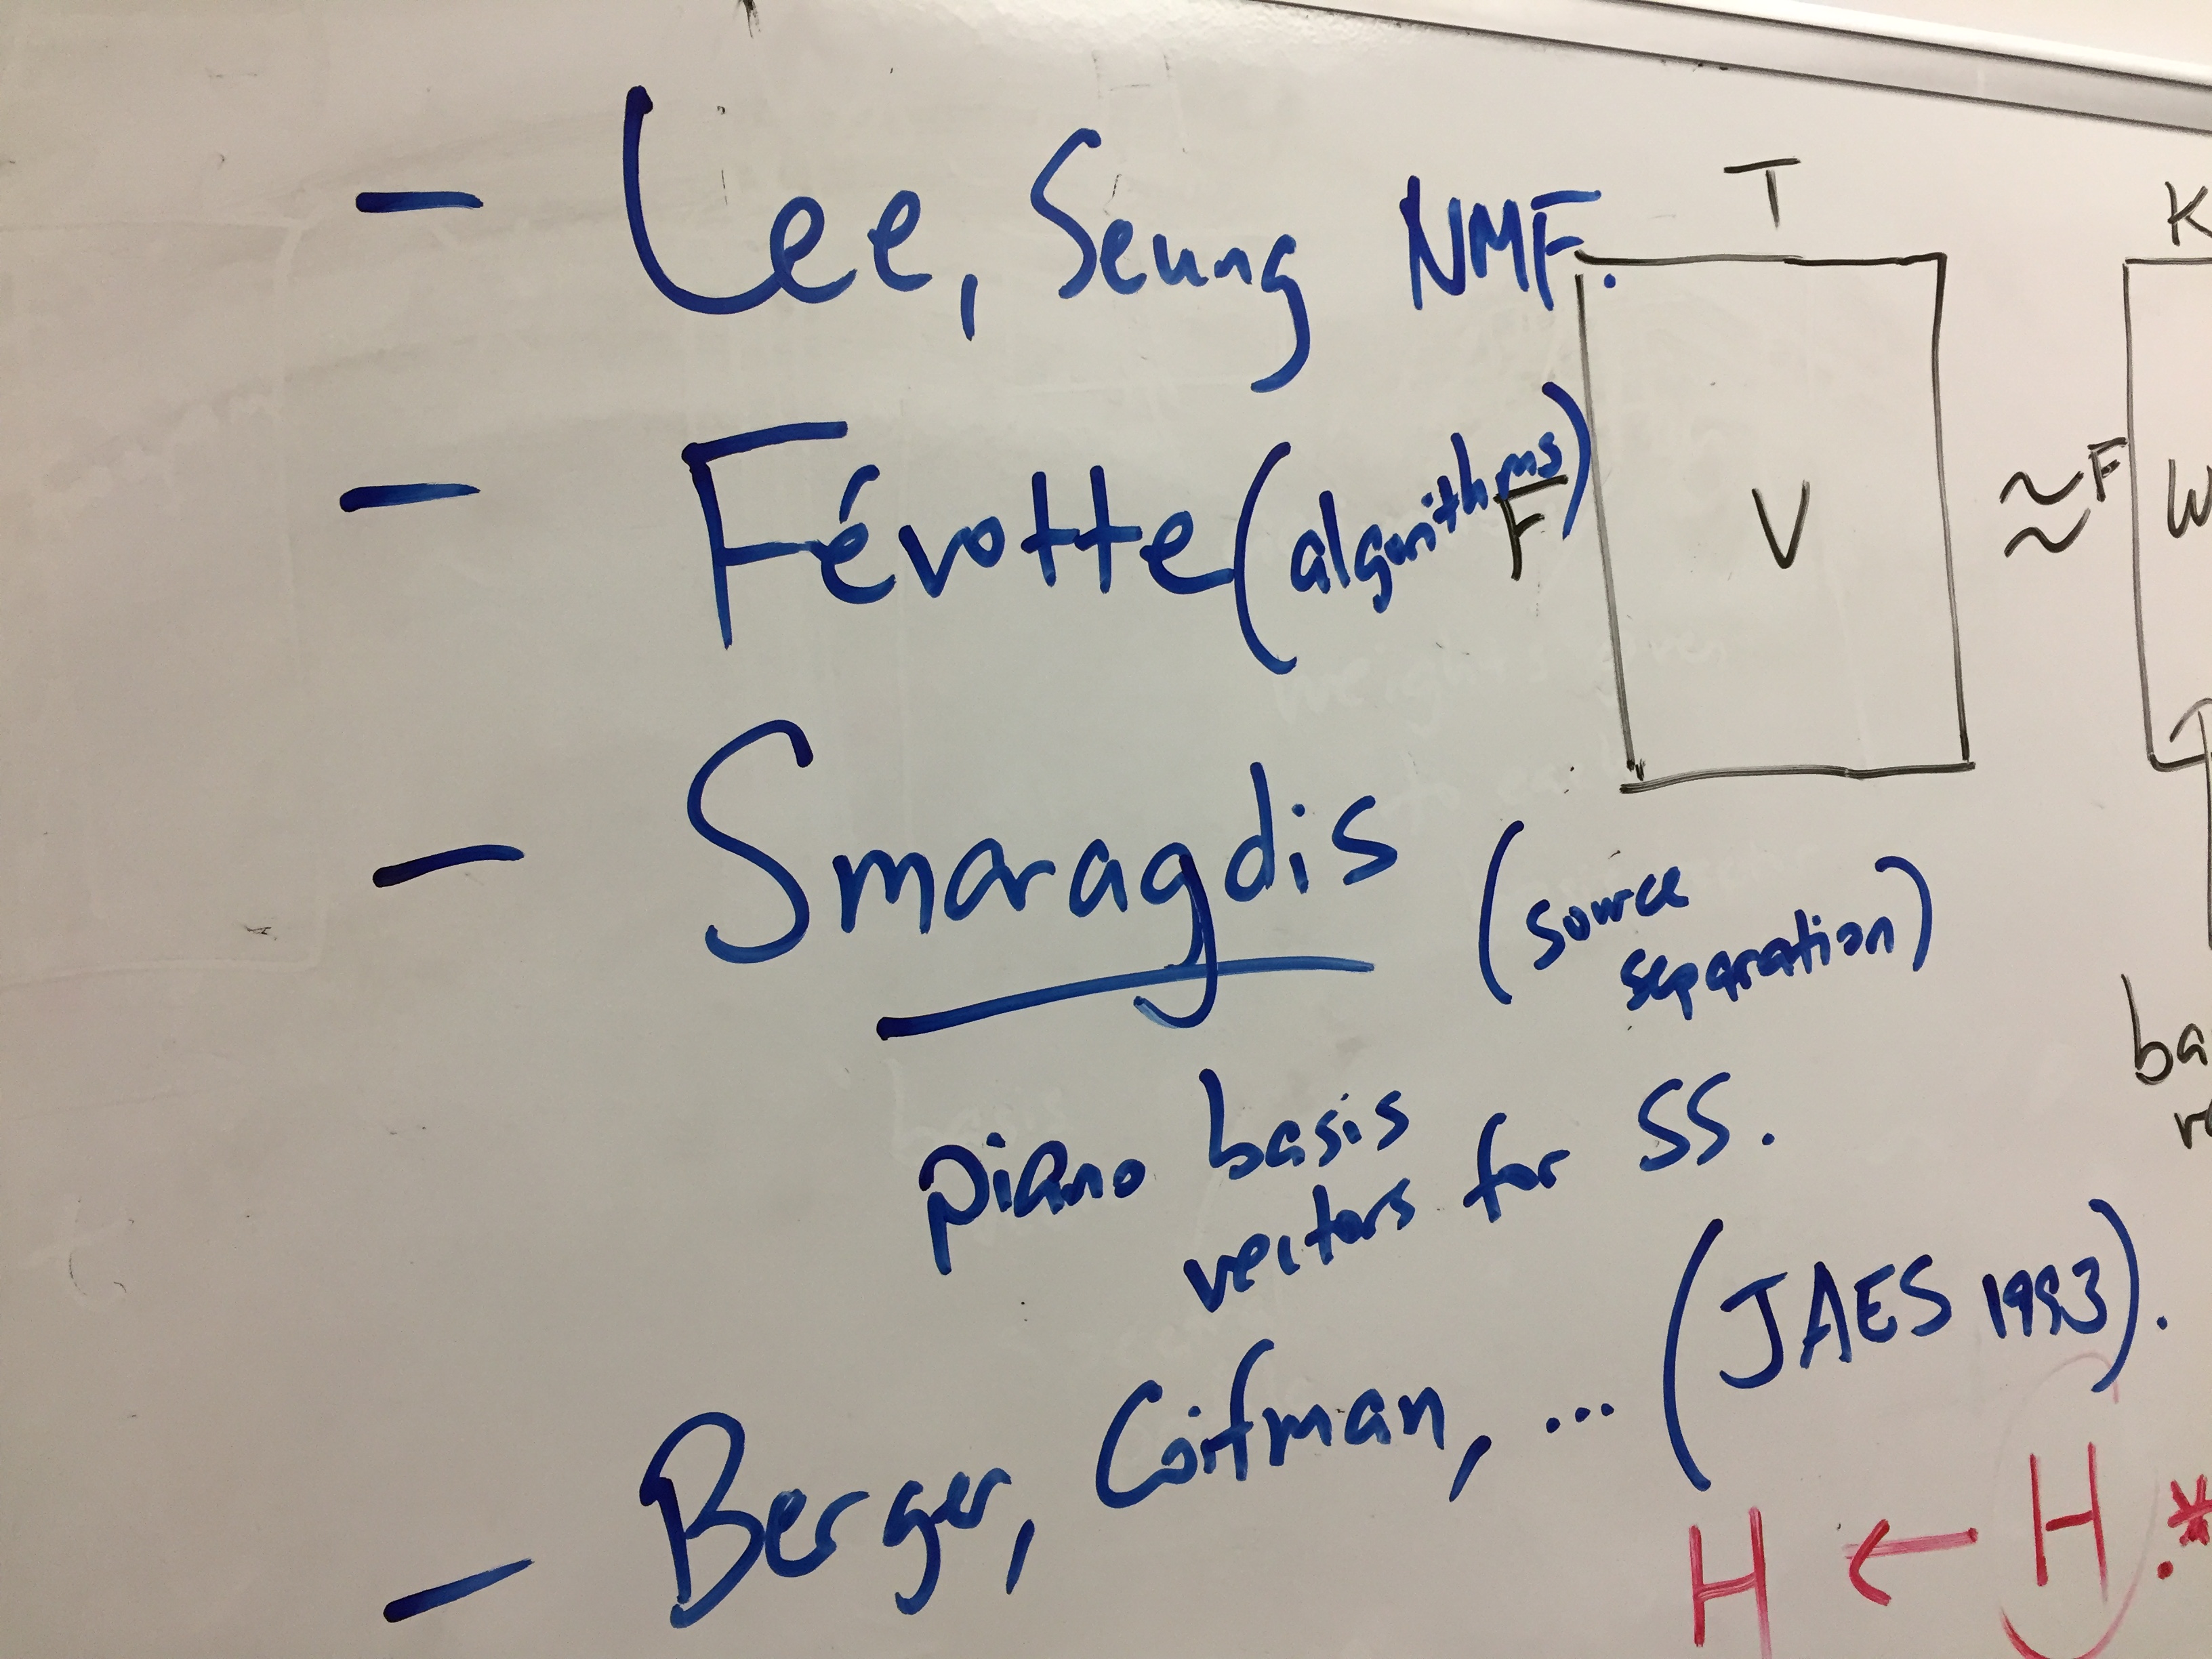 - Lee, Seung NMF.
- Févotte (algorithms)
- Smaragdis (source
separation)
piano basis
vectors for SS.
- Berger, Coifman, ... (JAES 1993).
T
F V ≈
K
F W
H ← H .*